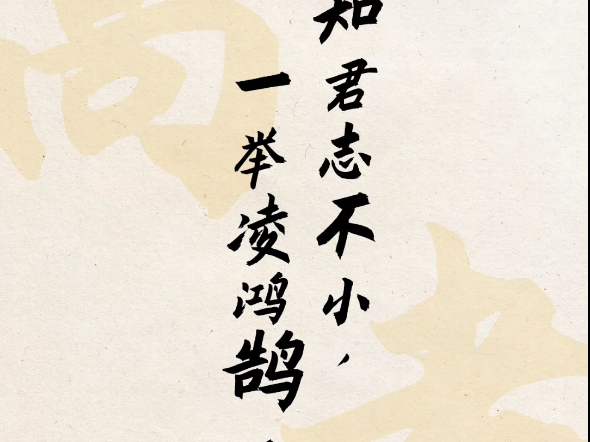 知君志不小，
一举凌鸿鹄